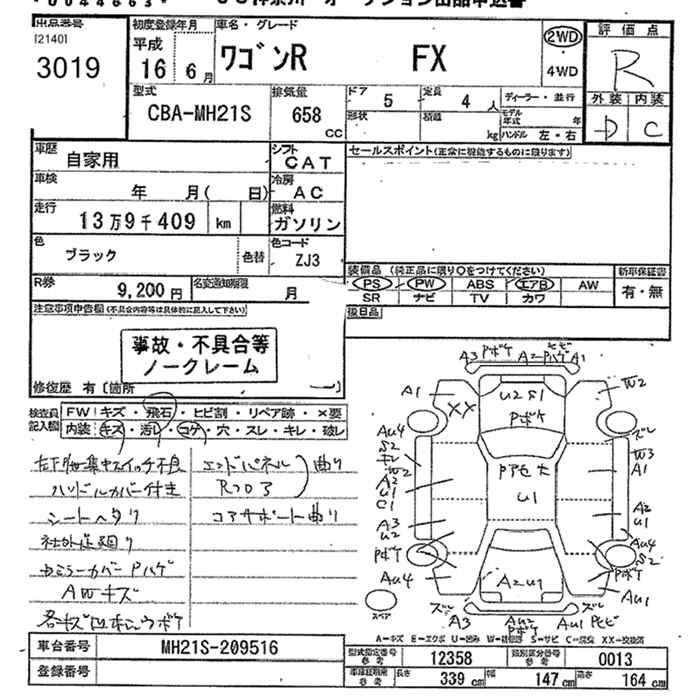 3019
[2140]
初度登録年月
平成
16 6月
車名・グレード
ワゴンR FX
2WD
4WD
評価点
R
外装 内装
D C
型式
CBA-MH21S
排気量
658
CC
ドア 5
定員 4 人
ディーラー・並行
形状
積載 kg
モデル年式 年
ハンドル 左・右
車歴
自家用
シフト
CAT
セールスポイント(正常に機能するものに限ります)
車検
年 月( 日)
冷房
AC
走行
13万9千409 km
燃料
ガソリン
色
ブラック
色替
色コード
ZJ3
装備品 (純正品に限り○をつけてください)
新車保証書
PS PW ABS エアB AW
有・無
SR ナビ TV カワ
R券
9,200円
名変通知期限
月
後日品
注意事項申告欄(不具合内容等は具体的に記入して下さい)
事故・不具合等
ノークレーム
修復歴 有〔箇所 〕
検査員
記入欄
FW キズ・飛石・ヒビ割・リペア跡・×要
内装 キズ・汚レ・コゲ・穴・スレ・キレ・破レ
エンドパネル 曲り
Rフロア
ハンドルカバー付き
コアサポート曲り
シートヘタリ
AWキズ
A3 Pボケ A2 Pハゲ A1
A1
XX
U2 S1
Pボケ
W2
ズレ
Au4
S2
W2
A2
U1
C1
W3
A1
U1
A3
U2
A2
U1
Pボケ
Au4
Au4
S2
Pボケ
Au1
A2U1
ズレ
A3
Au2
Pボケ
ズレ
Au1
スペア
A-キズ E-エクボ U-凹み W-補修跡 S-サビ C-腐食 XX-交換済
車台番号
MH21S-209516
登録番号
型式指定番号
参考
12358
類別区分番号
参考
0013
車体証明用
参考
長さ 339 cm
幅 147 cm
高さ 164 cm